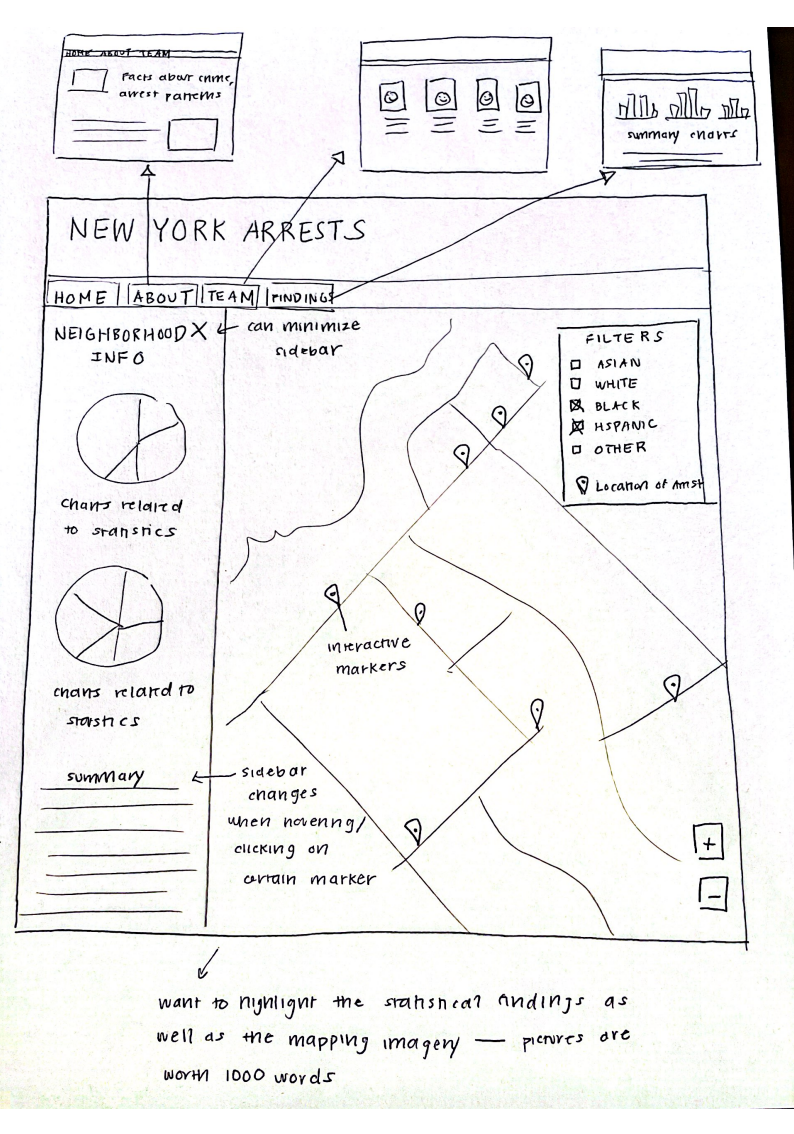 HOME ABOUT TEAM
Facts about crime,
arrest patterns
summary charts
NEW YORK ARRESTS
HOME
ABOUT
TEAM
FINDINGS
NEIGHBORHOOD X
INFO
can minimize
sidebar
charts related
to statistics
charts related to
statistics
summary
sidebar
changes
when hovering/
clicking on
certain marker
interactive
markers
FILTERS
ASIAN
WHITE
BLACK
HSPANIC
OTHER
Location of Arrest
+
−
want to highlight the statistical findings as
well as the mapping imagery — pictures are
worth 1000 words